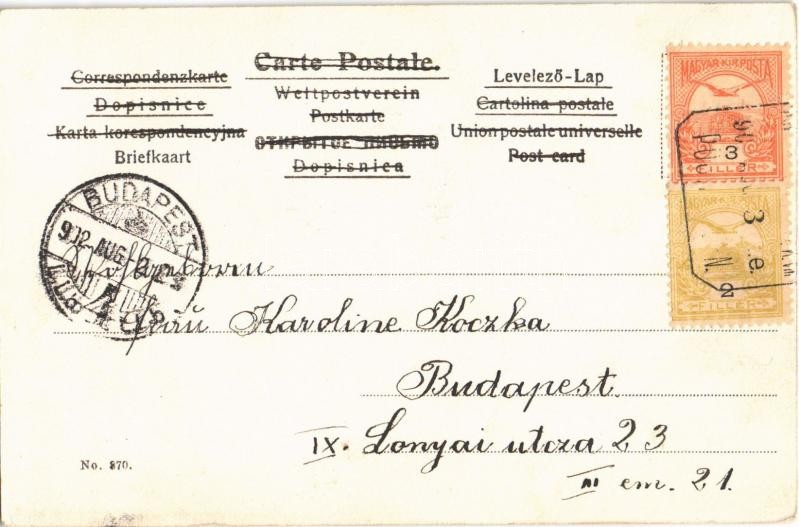 Carte Postale.
Correspondenzkarte
Weltpostverein
Levelező-Lap
Dopisnice
Postkarte
Cartolina postale
Karta korespondencyjna
ОТКРЫТОЕ ПИСЬМО
Union postale universelle
Briefkaart
Dopisnica
Post card
MAGYAR KIR. POSTA
3
FILLER
MAGYAR KIR. POSTA
2
FILLER
BUDAPEST
902 AUG
3
N.
Frau Karoline Koczka
Budapest.
IX. Lonyai utcza 23
III em. 21.
No. 370.